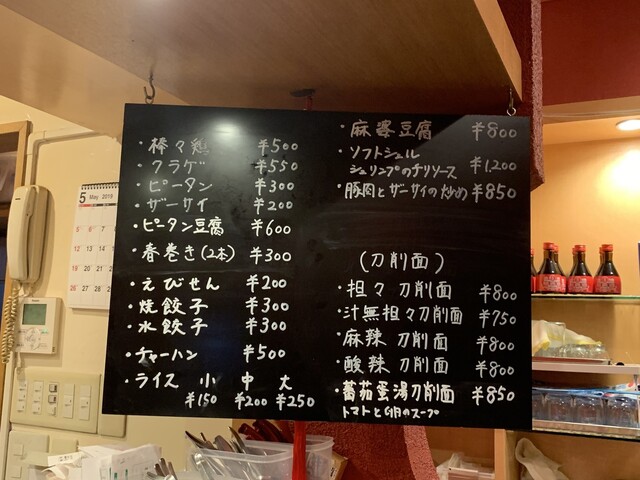 ・棒々鶏 ¥500
・クラゲ ¥550
・ピータン ¥300
・ザーサイ ¥200
・ピータン豆腐 ¥600
・春巻き(2本) ¥300
・えびせん ¥200
・焼餃子 ¥300
・水餃子 ¥300
・チャーハン ¥500
・ライス 小 中 大
¥150 ¥200 ¥250
・麻婆豆腐 ¥800
・ソフトシェル
シュリンプのチリソース ¥1,200
・豚肉とザーサイの炒め ¥850
(刀削面)
・担々刀削面 ¥800
・汁無担々刀削面 ¥750
・麻辣 刀削面 ¥800
・酸辣 刀削面 ¥800
・蕃茄蛋湯刀削面 ¥850
トマトと卵のスープ
5 May 2019